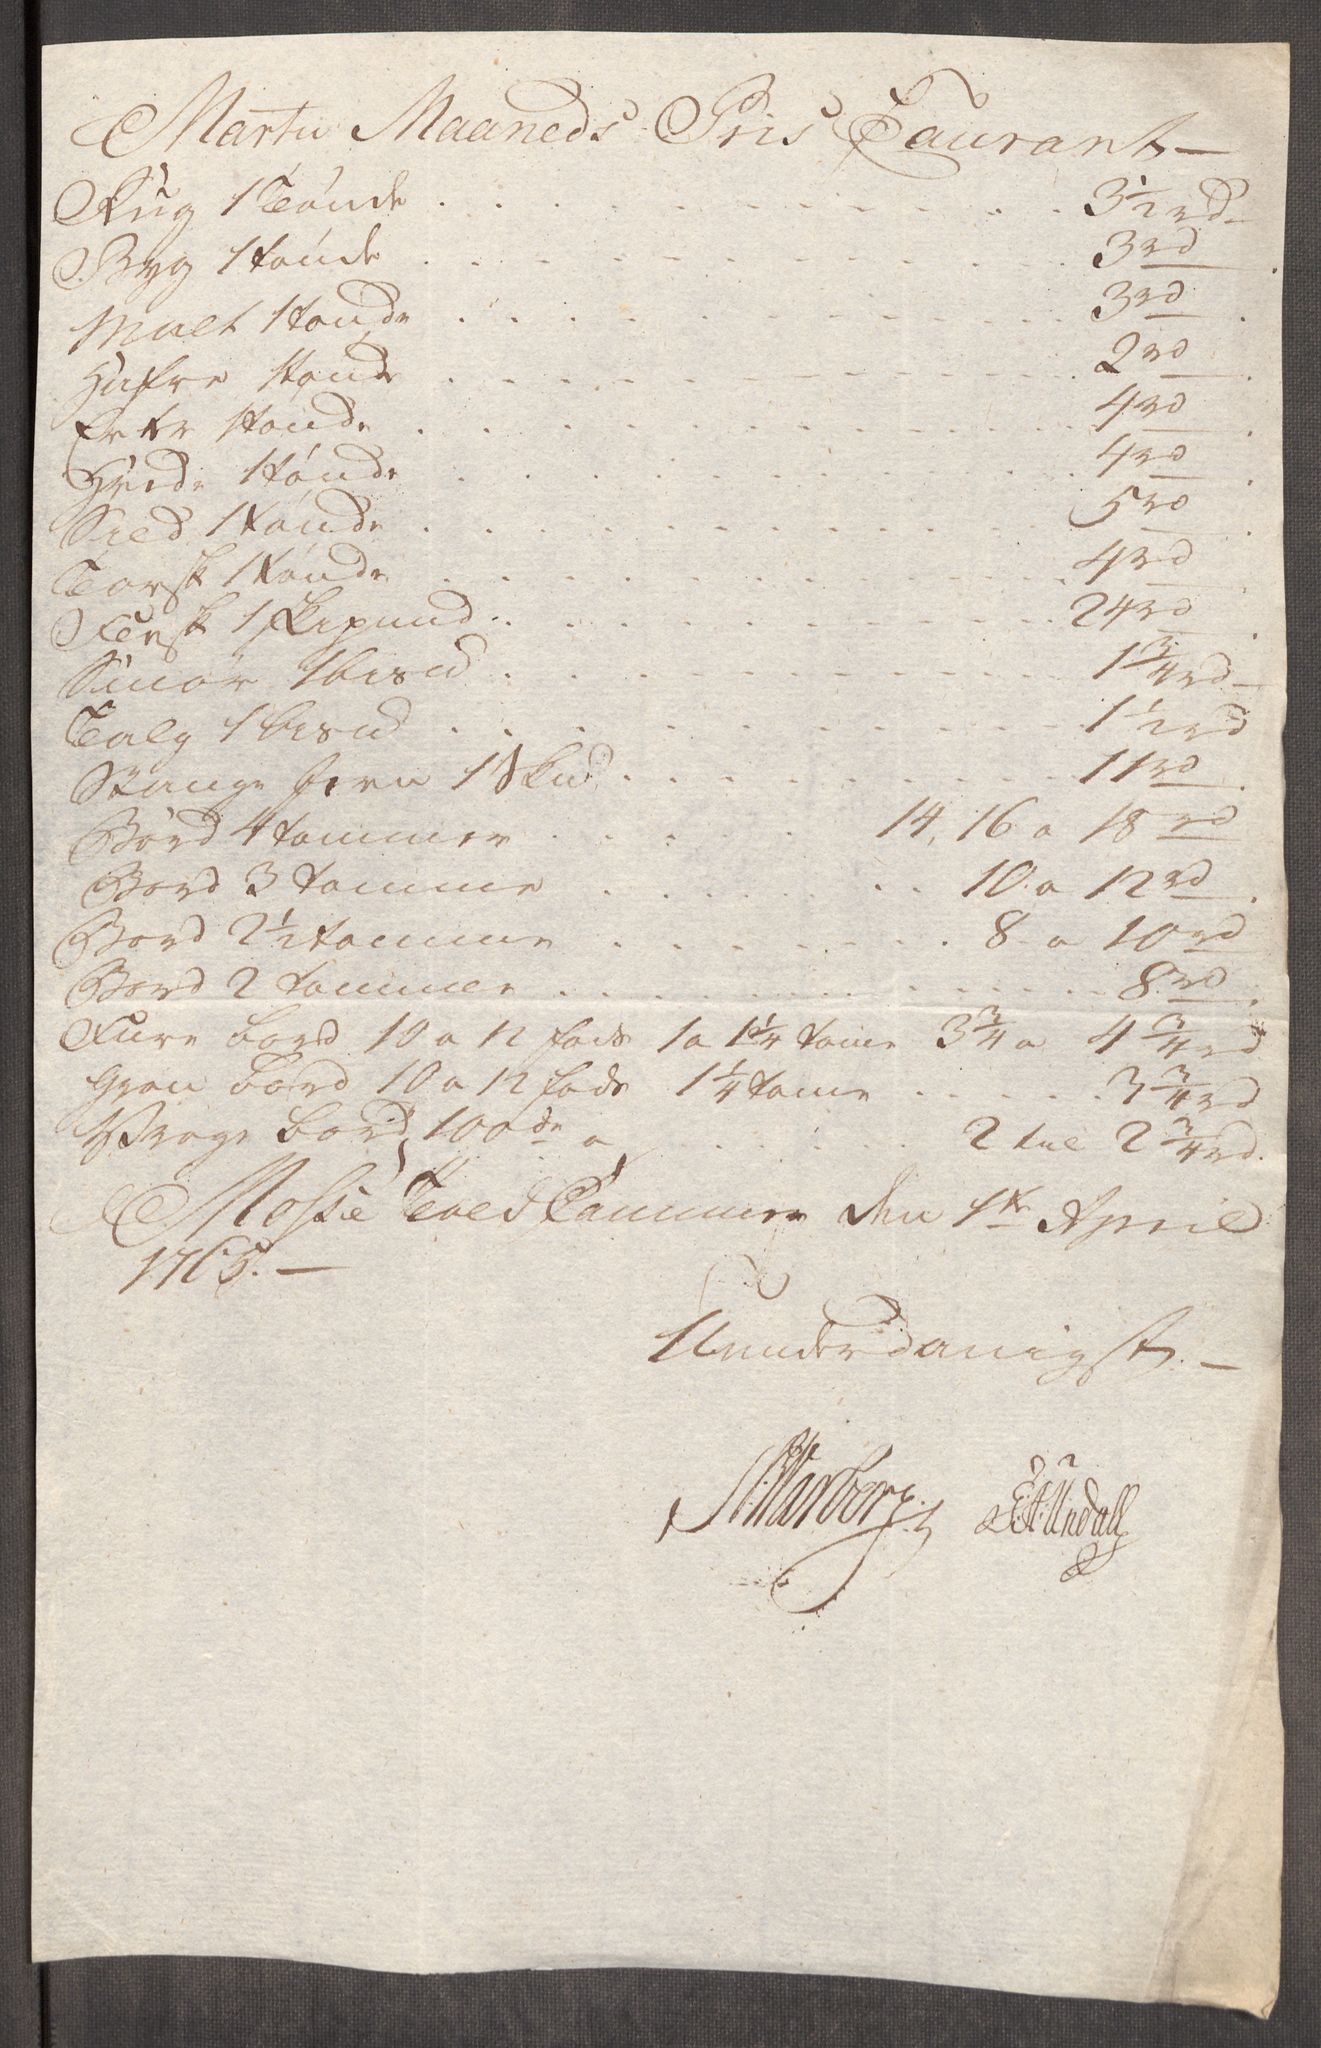 Martii Maaneds Pris Courant
Rug 1 Tønde . . . 3 1/2 rd
Byg 1 tønde . . . 3 rd
Malt 1 tønde . . . 3 rd
Hafre 1 tønde . . . 2 rd
Erter 1 tønde . . . 4 rd
Hvede 1 tønde . . . 4 rd
Sild 1 tønde . . . 5 rd
Torsk 1 tønde . . . 4 rd
1 skipund . . . 24 rd
Smør 1 bisd . . . 1 3/4 rd
Talg 1 bisd . . . 1 1/2 rd
Stange Jern 1 Skd . . . 11 rd
Bord 4 tommer . . . 14, 16 a 18 rd
Bord 3 tomme . . . 10 a 12 rd
Bord 2 1/2 tomme . . . 8 a 10 rd
Bord 2 tommer . . . 8 rd
Fure bord 10 a 12 fods 1 a 1 1/4 tome 3 3/4 a 4 3/4 rd
Gran bord 10 a 12 fods 1 1/4 tome . . . 3 3/4 rd
Vrage bord 100de a . . . 2 till 2 3/4 rd.
Mosse Told Cammer den 1te April
1765.
Underdanigst
Warberg E: A: Undall